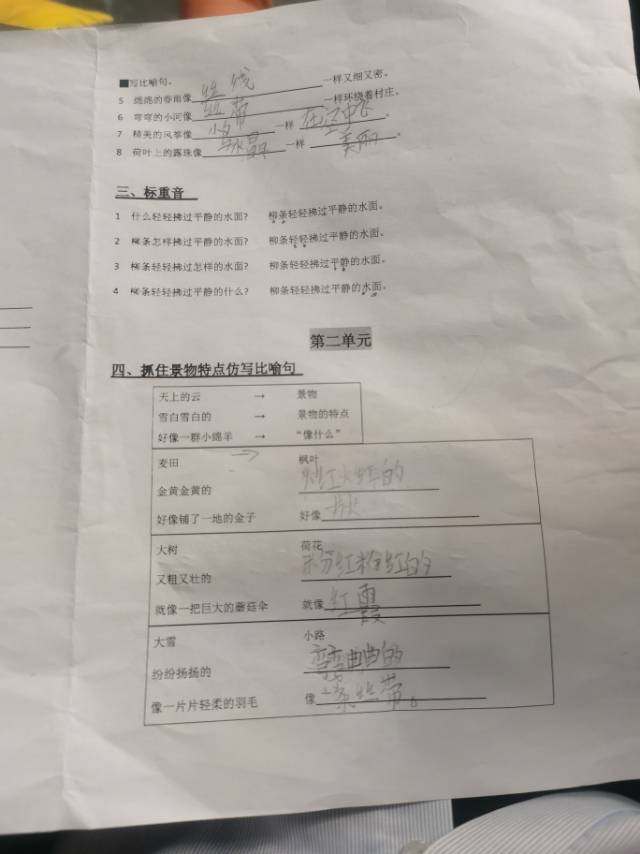 ■写比喻句。
5 绵绵的春雨像丝线一样又细又密。
6 弯弯的小河像丝带一样环绕着村庄。
7 精美的风筝像小鸟一样在空中飞。
8 荷叶上的露珠像水晶一样美丽。
三、标重音
1 什么轻轻拂过平静的水面? 柳条轻轻拂过平静的水面。
2 柳条怎样拂过平静的水面? 柳条轻轻拂过平静的水面。
3 柳条轻轻拂过怎样的水面? 柳条轻轻拂过平静的水面。
4 柳条轻轻拂过平静的什么? 柳条轻轻拂过平静的水面。
第二单元
四、抓住景物特点仿写比喻句
天上的云 → 景物
雪白雪白的 → 景物的特点
好像一群小绵羊 → “像什么”
麦田 → 枫叶
金黄金黄的 火红火红的
好像铺了一地的金子 好像片火
大树 荷花
又粗又壮的 粉红粉红的
就像一把巨大的蘑菇伞 就像红霞
大雪 小路
纷纷扬扬的 弯弯曲曲的
像一片片轻柔的羽毛 像一条丝带。